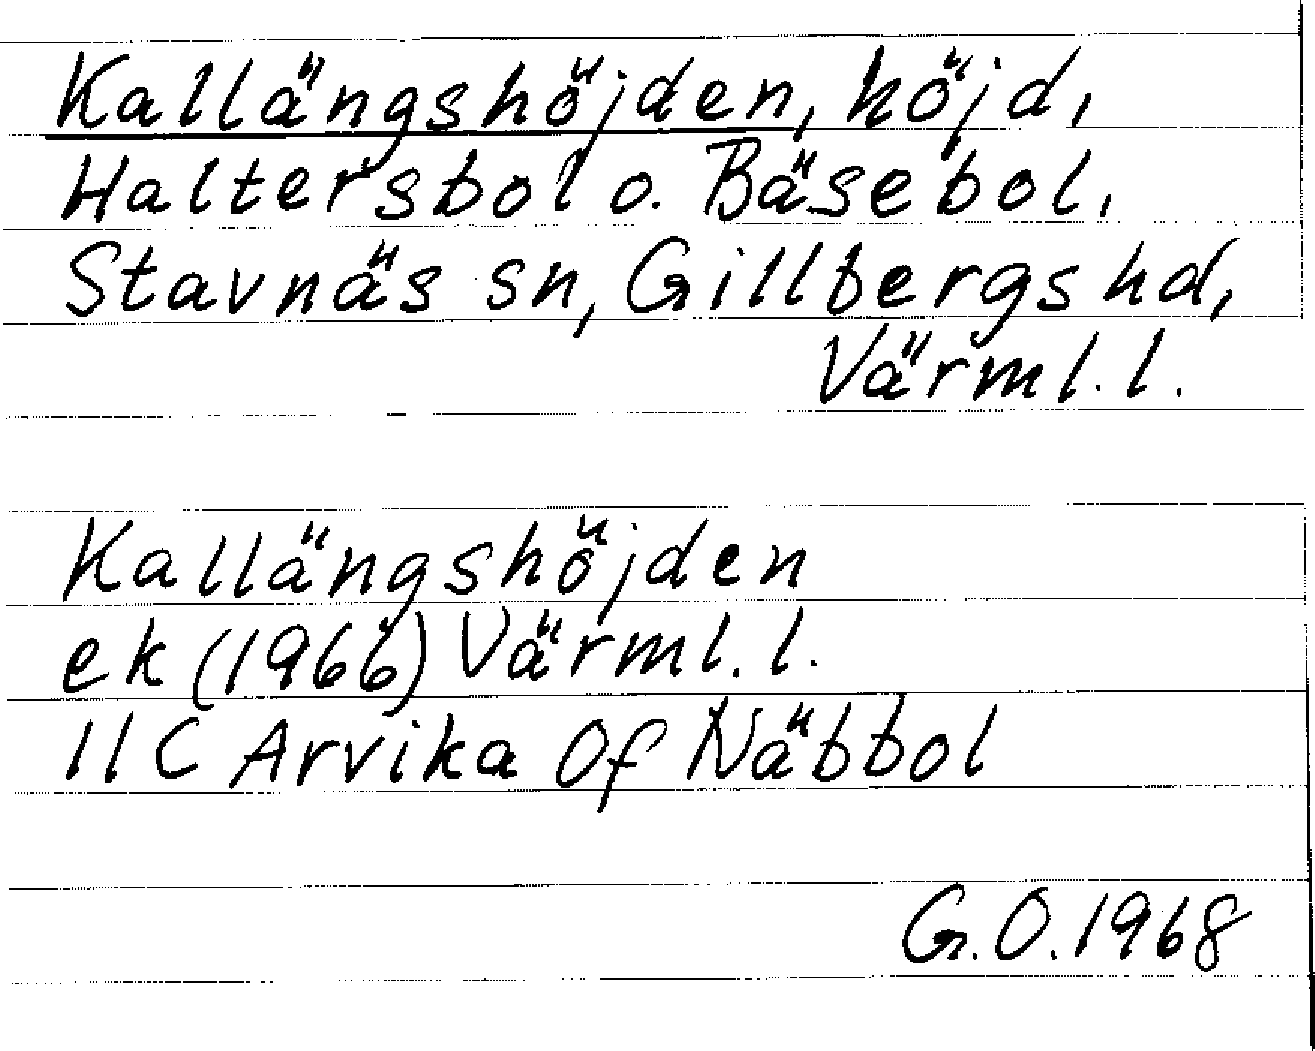 Kallängshöjden, höjd,
Haltersbol o. Bäsebol,
Stavnäs sn, Gillbergs hd,
Värml. l.
Kallängshöjden
ek (1966) Värml. l.
11C Arvika 0f Näbbol
G.O. 1968